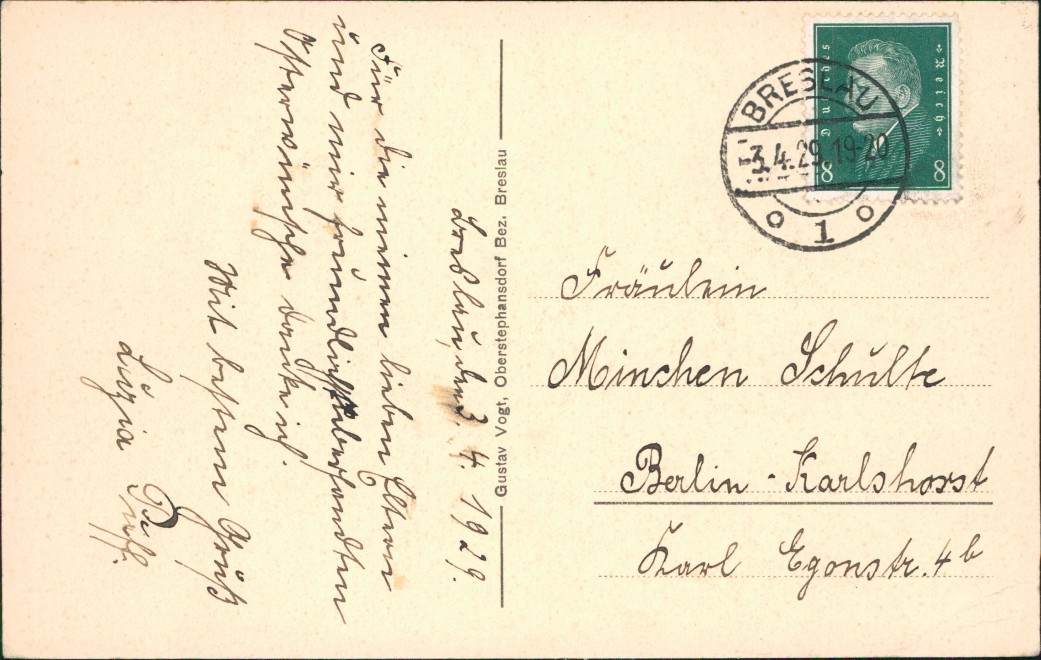 Breslau, den 3. 4. 1929.
Für die meinen lieben Eltern
und mir freundlichst übersandten
Osterwünsche danke ich.
Mit bestem Gruß
Luzia
Gustav Vogt, Oberstephansdorf Bez. Breslau
Deutsches Reich
8 8
BRESLAU
-3.4.29.19-20
o 1 o
Fräulein
Minchen Schulte
Berlin-Karlshorst
Karl Egonstr. 4b